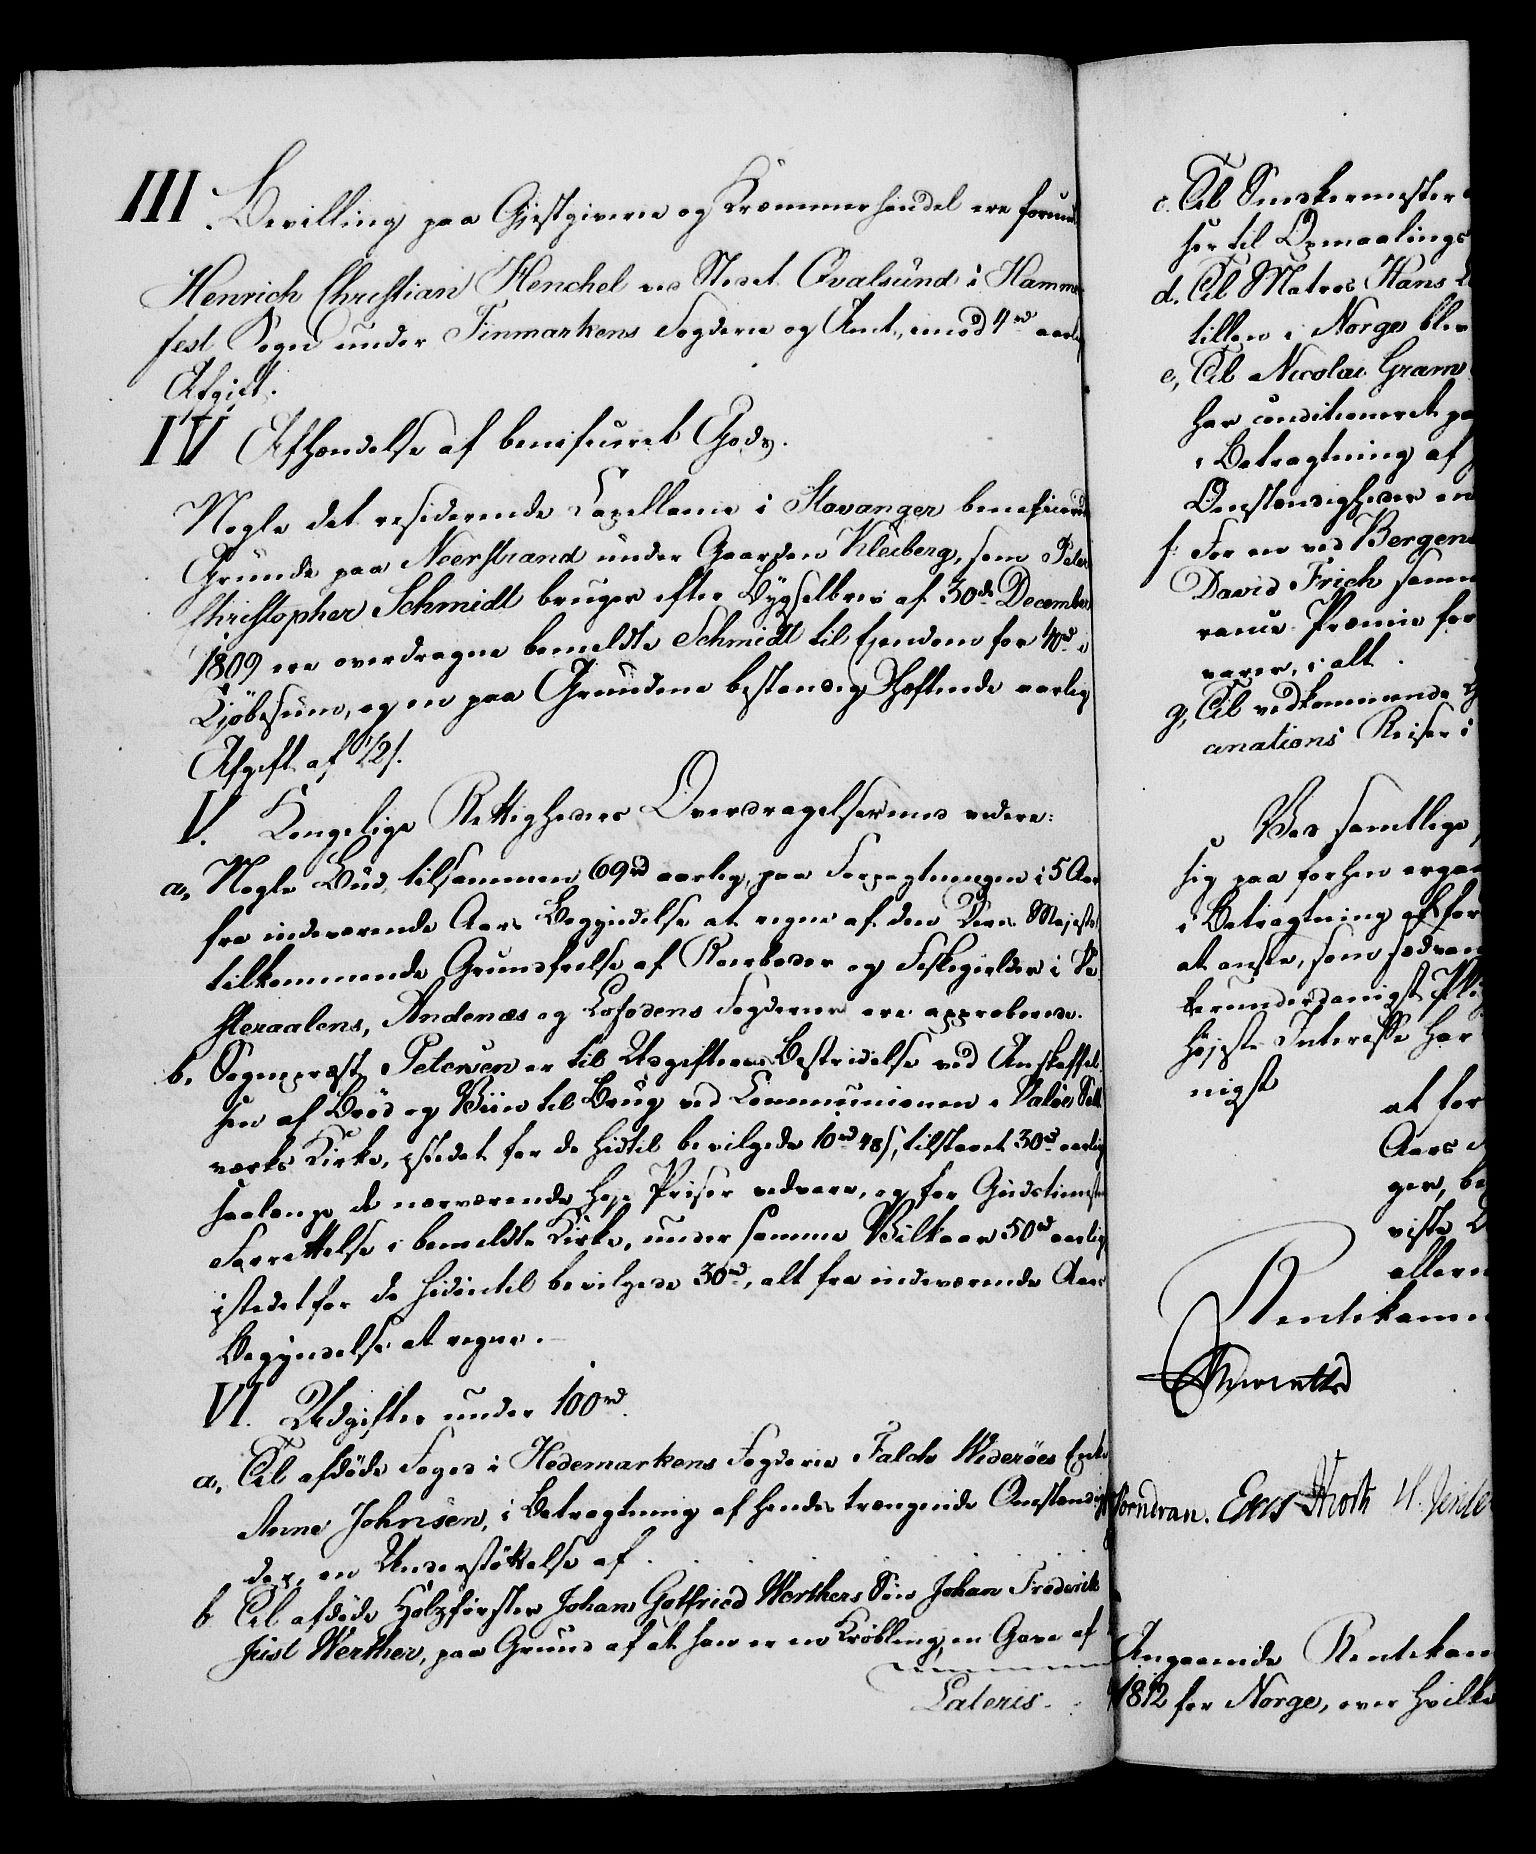 III. Bevilling paa Gjestgiverie og Kræmmerhandel ere forundt
Henrich Christian Henckel ved Stedet Qvalsund i Hammer
fest Sogn under Finmarkens Fogderie og Amt, imod 4rd aarlig
Afgift.
IV Afhændelse af beneficeret Gods.
Nogle det residerende Capellanie i Stavanger beneficerede
Grunde paa Neerstrand under Gaarden Kleiberg, som Peter
Christopher Schmidt bruger efter Bygselbrev af 30de December
1809 ere overdragne bemeldte Schmidt til Eiendom for 40rd i
Kjöbesum, og en paa Grundene bestandig Hæftende aarlig
Afgift af 12/.
V. Kongelige Rettigheders Overdragelse med videre:
a, Nogle Bud, tilsammen 69rd aarlig, paa Forpagtningen i 5 Aar
fra indeværende Aars Begyndelse at regne af den Deres Majestæt
tilkommende Grundfrelse af Roerboder og Fiskegielder i Ve
steraalens, Andenæs og Lofodens Fogderier ere approberede.
b. Sognepræst Petersen er til Udgifternes Bestridelse ved Anskaffel
sen af Bröd og Viin til Brug ved Communionen i Valöe Salt
værks Kirke, istedet for de hidtil bevilgede 10rd 48/, tilstaaet 30rd aarlig
saalænge de nærværende høje Priser vedvare, og for Gudstjenestens
Forrettelse i bemeldte Kirke, under samme Vilkaar 50rd aarlig
istedetfor de hidindtil bevilgede 30rd, alt fra indeværende Aars
Begyndelse at regne.
VI. Udgifter under 100rd.
a, Til afdöde Foged i Hedemarkens Fogderie Falch Wideröes Enke
Anne Johnsen, i Betragtning af hendes trængende Omstændighe
der, en Understöttelse af.
b Til afdöde Holzförster Johan Gotfried Werthers Sön Johan Frederik
Just Werther, paa Grund af at han er en Krøbling, en Gave af
Lateris.
c. Til Snedkermester
her til Opmaalings
d. Til Matros Hans
tillen i Norge blev
e, Til Nicolai Gram
har conditioneret paa
i Betragtning af
Omstændigheder en
f. For en ved Bergens
David Frich
rance Præmie for
varer, i alt.
g, Til vedkommende
inations Reiser i
Ved samtlige
sig paa forhen ergaa
i Betragtning af for
at ansee, som sædvan
lerunderdanigst Plig
höjeste Interesse har
nigst
at for
Aars
ger, be
viste
allern
Rentekamm
Erics
Angaaende Rentekam
1812 for Norge, over hvilke